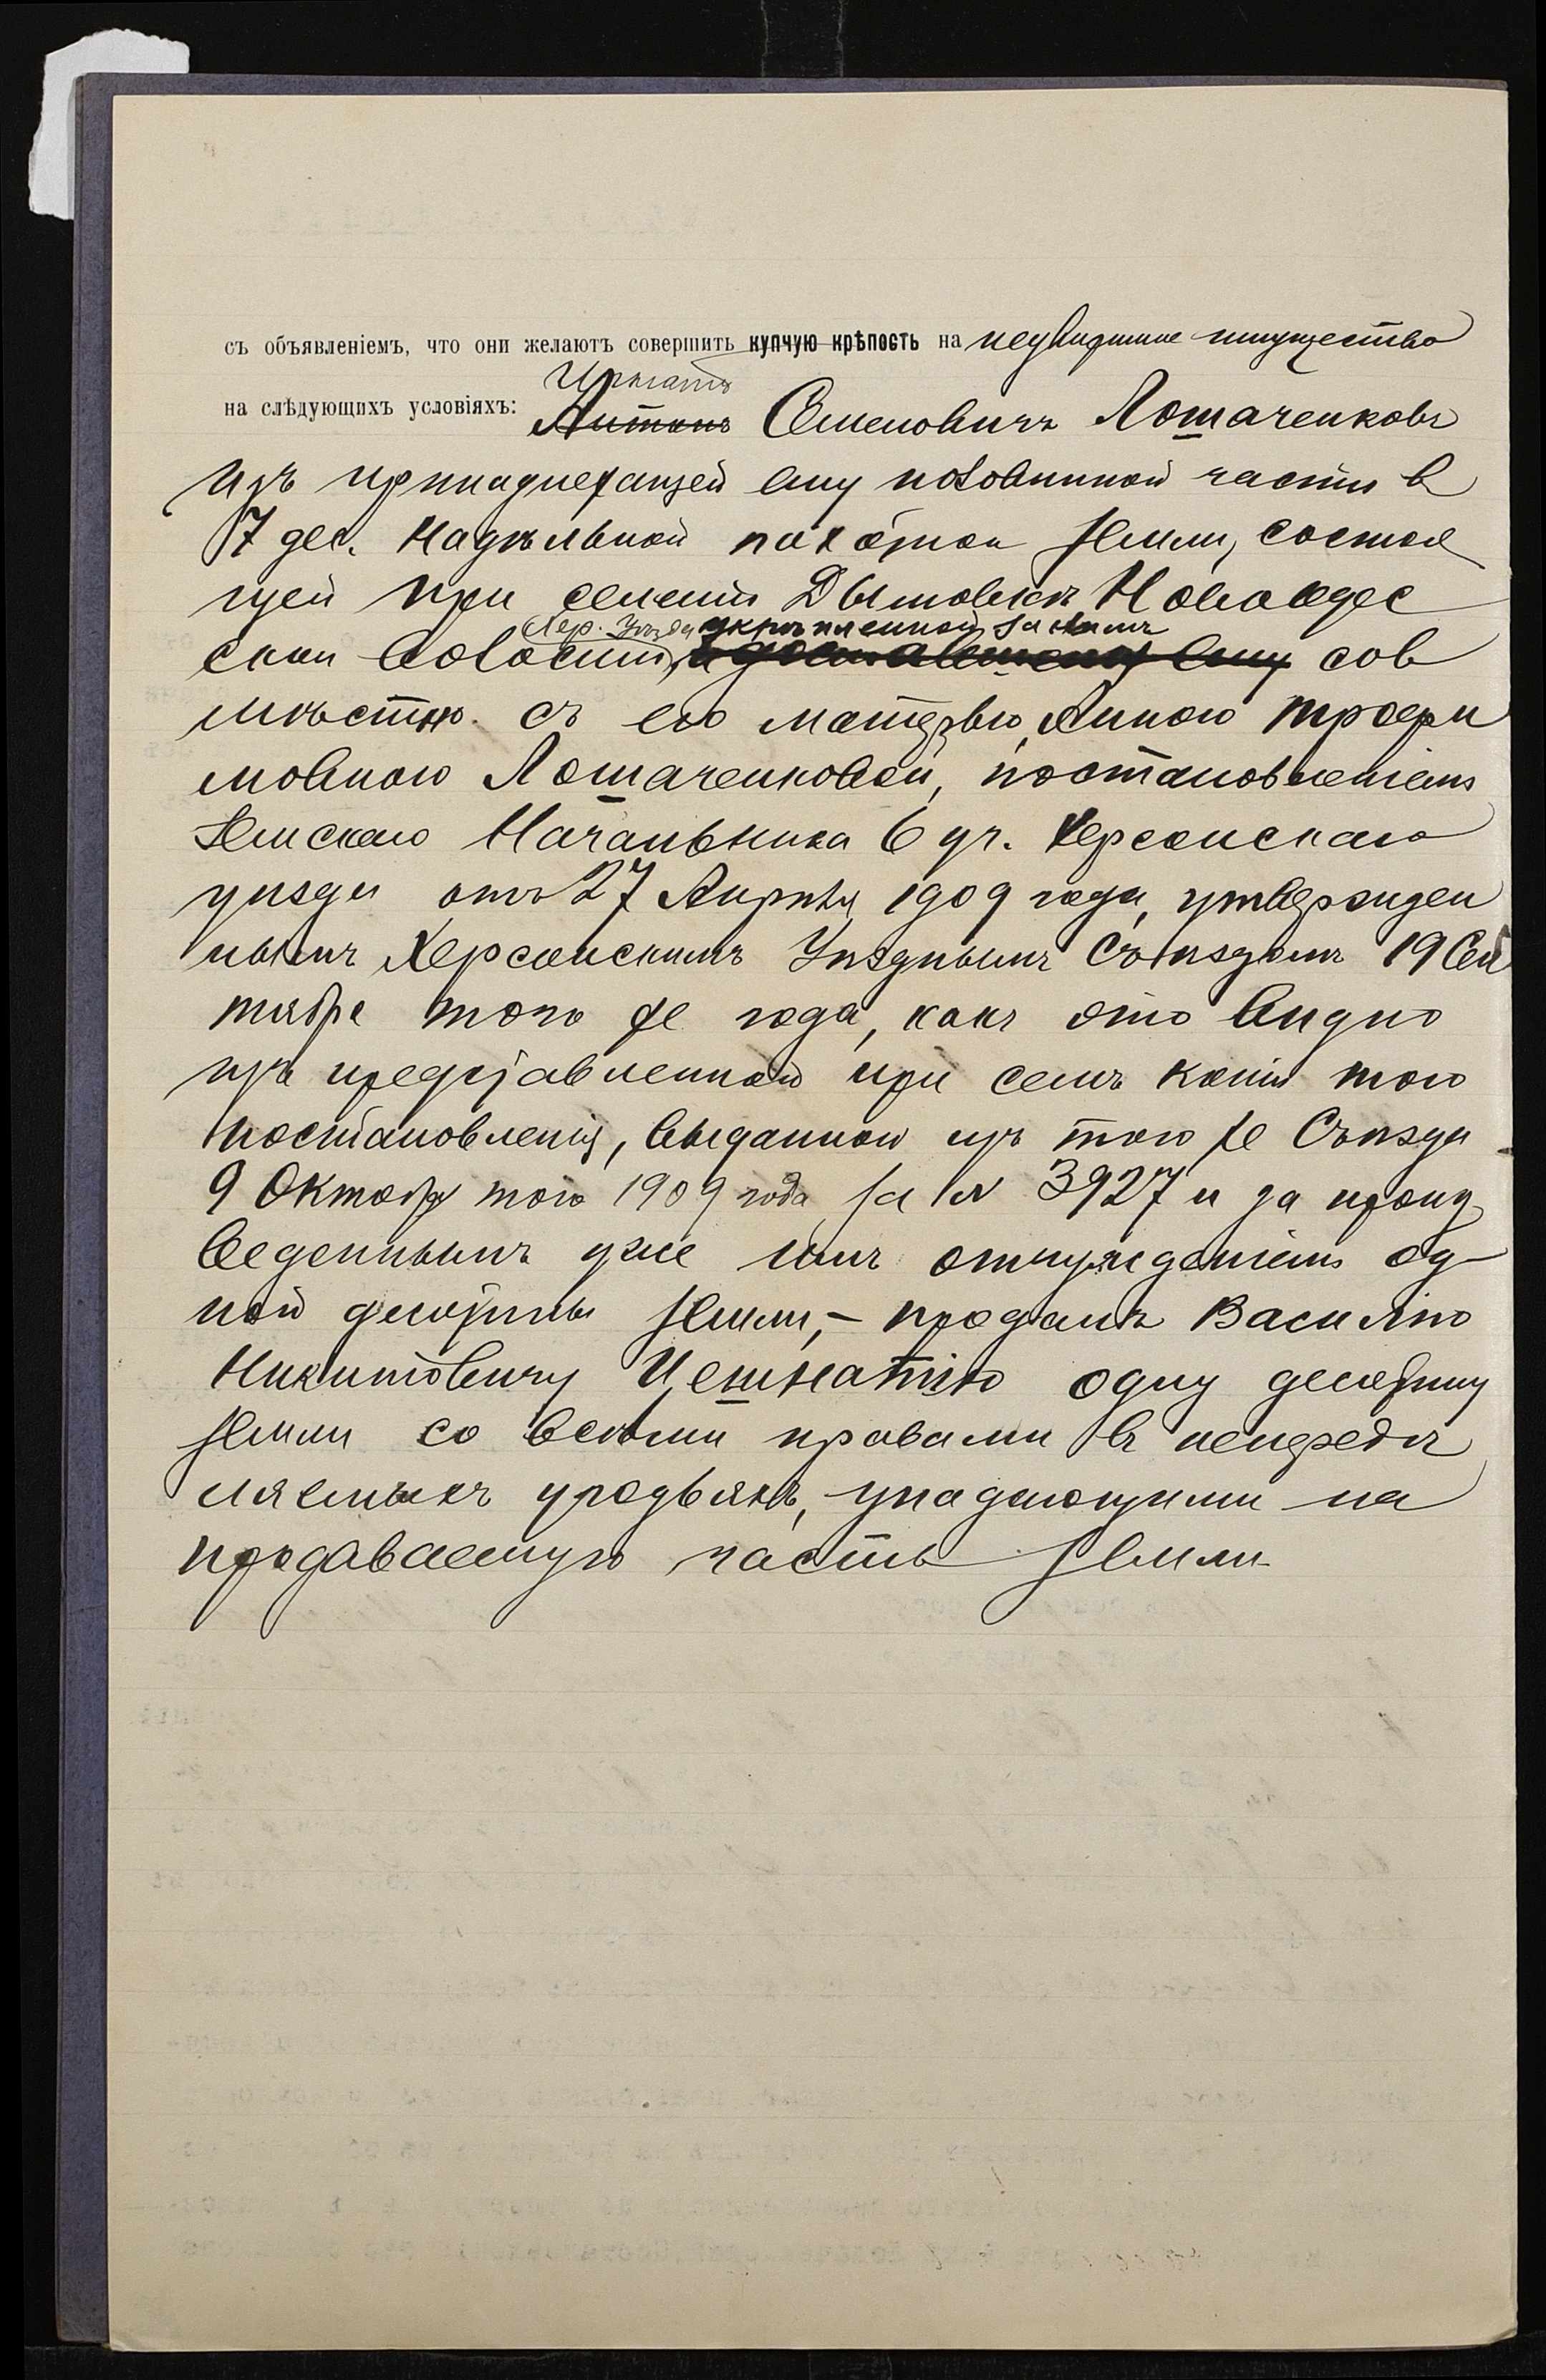 съ объявленіемъ, что они желаютъ совершить купчую крѣпость на недвижимое имущество
на слѣдующихъ условіяхъ: Антонъ Семеновичъ Лошаченковъ
изъ принадлежащей ему половинной части в
7 дес. надѣльной пахотной земли, состоя
щей при селеніи Дымовкѣ Новоодес
Хер. Уѣзда укрѣпленной за нимъ
ской волости, сов
мѣстно съ его матерью, Анною Трофи
мовною Лошаченковой, постановленіемъ
Земскаго Начальника 6 уч. Херсонскаго
уѣзда отъ 27 Апрѣля 1909 года, утвержден
нымъ Херсонскимъ Уѣзднымъ Съѣздомъ 19 Сен
тября того же года, какъ это видно
изъ предъявленной при семъ копіи того
постановленія, выданной изъ того же Съѣзда
9 Октября того 1909 года за № 3927 и за произ
веденнымъ уже имъ отчужденіемъ од-
ной десятины земли, – продалъ Василію
Никитовичу одну десятину
земли со всѣми правами въ непередѣ
ляемыхъ угодьяхъ, упадающими на
продаваемую часть земли